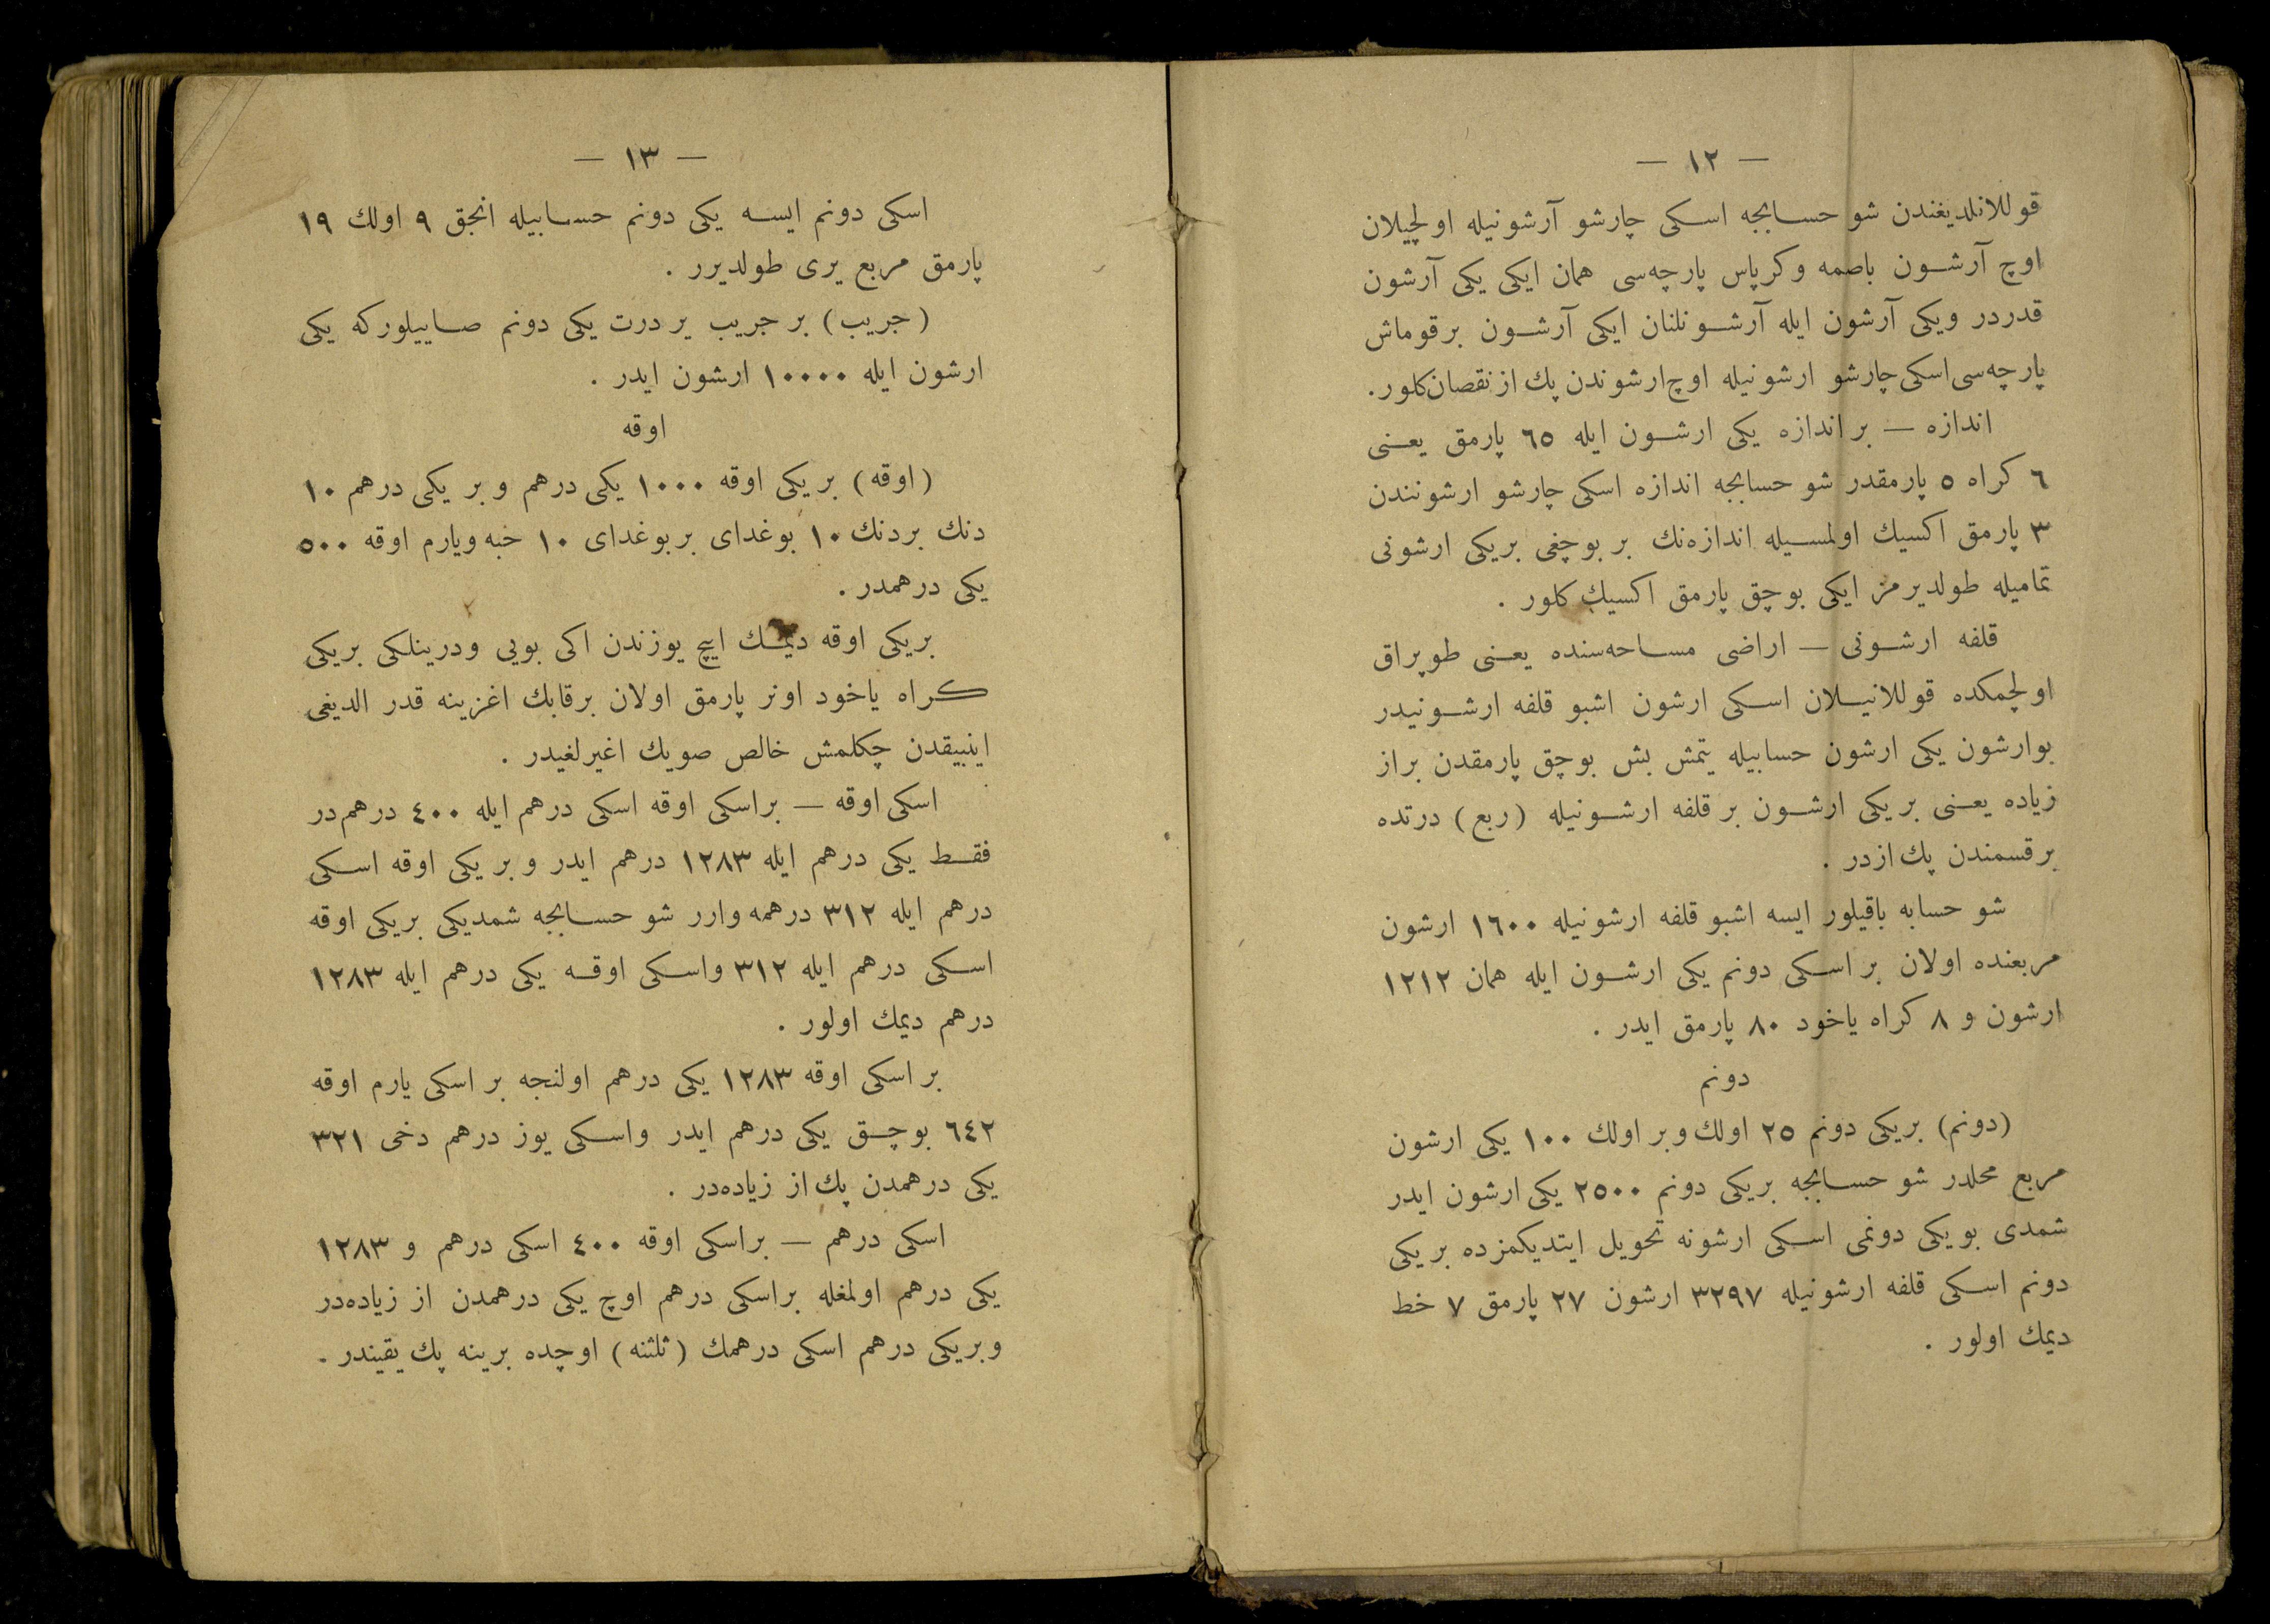 — ١٢ —
قوللانلديغندن شو حسابجه اسكی چارشو آرشونيله اولچيلان
اوچ آرشون باصمه وكرپاس پارچه‌سی همان ايكی يكی آرشون
قدردر ويكی آرشون ايله آرشونلنان ايكی آرشون برقوماش
پارچه‌سی اسكی چارشو ارشونيله اوچ ارشوندن پك از نقصان كلور.
اندازه — بر اندازه يكی ارشون ايله ٦٥ پارمق يعنی
٦ كراه ٥ پارمقدر شو حسابجه اندازه اسكی چارشو ارشونندن
٣ پارمق اكسيك اولمسيله اندازه‌نك بر بوچغی بريكی ارشونی
تماميله طولديرمز ايكی بوچق پارمق اكسيك كلور .
قلفه ارشونی — اراضی مساحه‌سنده يعنی طوپراق
اولچمكده قوللانيلان اسكی ارشون اشبو قلفه ارشونيدر
بوارشون يكی ارشون حسابيله يتمش بش بوچق پارمقدن براز
زياده يعنی بريكی ارشون بر قلفه ارشونيله (ربع) درتده
برقسمندن پك ازدر .
شو حسابه باقيلور ايسه اشبو قلفه ارشونيله ١٦٠٠ ارشون
مربعنده اولان بر اسكی دونم يكی ارشون ايله همان ١٢١٢
ارشون و ٨ كراه ياخود ٨٠ پارمق ايدر .
دونم
(دونم) بريكی دونم ٢٥ اولك وبر اولك ١٠٠ يكی ارشون
مربع محلدر شو حسابجه بريكی دونم ٢٥٠٠ يكی ارشون ايدر
شمدی بو يكی دونمی اسكی ارشونه تحويل ايتديكمزده بريكی
دونم اسكی قلفه ارشونيله ٣٢٩٧ ارشون ٢٧ پارمق ٧ خط
ديمك اولور .
— ١٣ —
اسكی دونم ايسه يكی دونم حسابيله انجق ٩ اولك ١٩
پارمق مربع يری طولديرر .
(جريب) بر جريب ير درت يكی دونم صاييلوركه يكی
ارشون ايله ١٠٠٠٠ ارشون ايدر .
اوقه
(اوقه) بريكی اوقه ١٠٠٠ يكی درهم و بر يكی درهم ١٠
دنك بردنك ١٠ بوغدای بربوغدای ١٠ حبه ويارم اوقه ٥٠٠
يكی درهمدر .
بريكی اوقه ديمك ايچ يوزندن اكی بويی ودرينلكی بريكی
كراه ياخود اونر پارمق اولان برقابك اغزينه قدر الديغی
اينبيقدن چكلمش خالص صويك اغيرلغيدر .
اسكی اوقه — براسكی اوقه اسكی درهم ايله ٤٠٠ درهم‌در
فقط يكی درهم ايله ١٢٨٣ درهم ايدر و بر يكی اوقه اسكی
درهم ايله ٣١٢ درهمه وارر شو حسابجه شمديكی بريكی اوقه
اسكی درهم ايله ٣١٢ واسكی اوقه يكی درهم ايله ١٢٨٣
درهم ديمك اولور .
بر اسكی اوقه ١٢٨٣ يكی درهم اولنجه بر اسكی يارم اوقه
٦٤٢ بوچق يكی درهم ايدر واسكی يوز درهم دخی ٣٢١
يكی درهمدن پك از زياده‌در .
اسكی درهم — براسكی اوقه ٤٠٠ اسكی درهم و ١٢٨٣
يكی درهم اولمغله براسكی درهم اوچ يكی درهمدن از زياده‌در
وبريكی درهم اسكی درهمك (ثلثنه) اوچده برينه پك يقيندر .